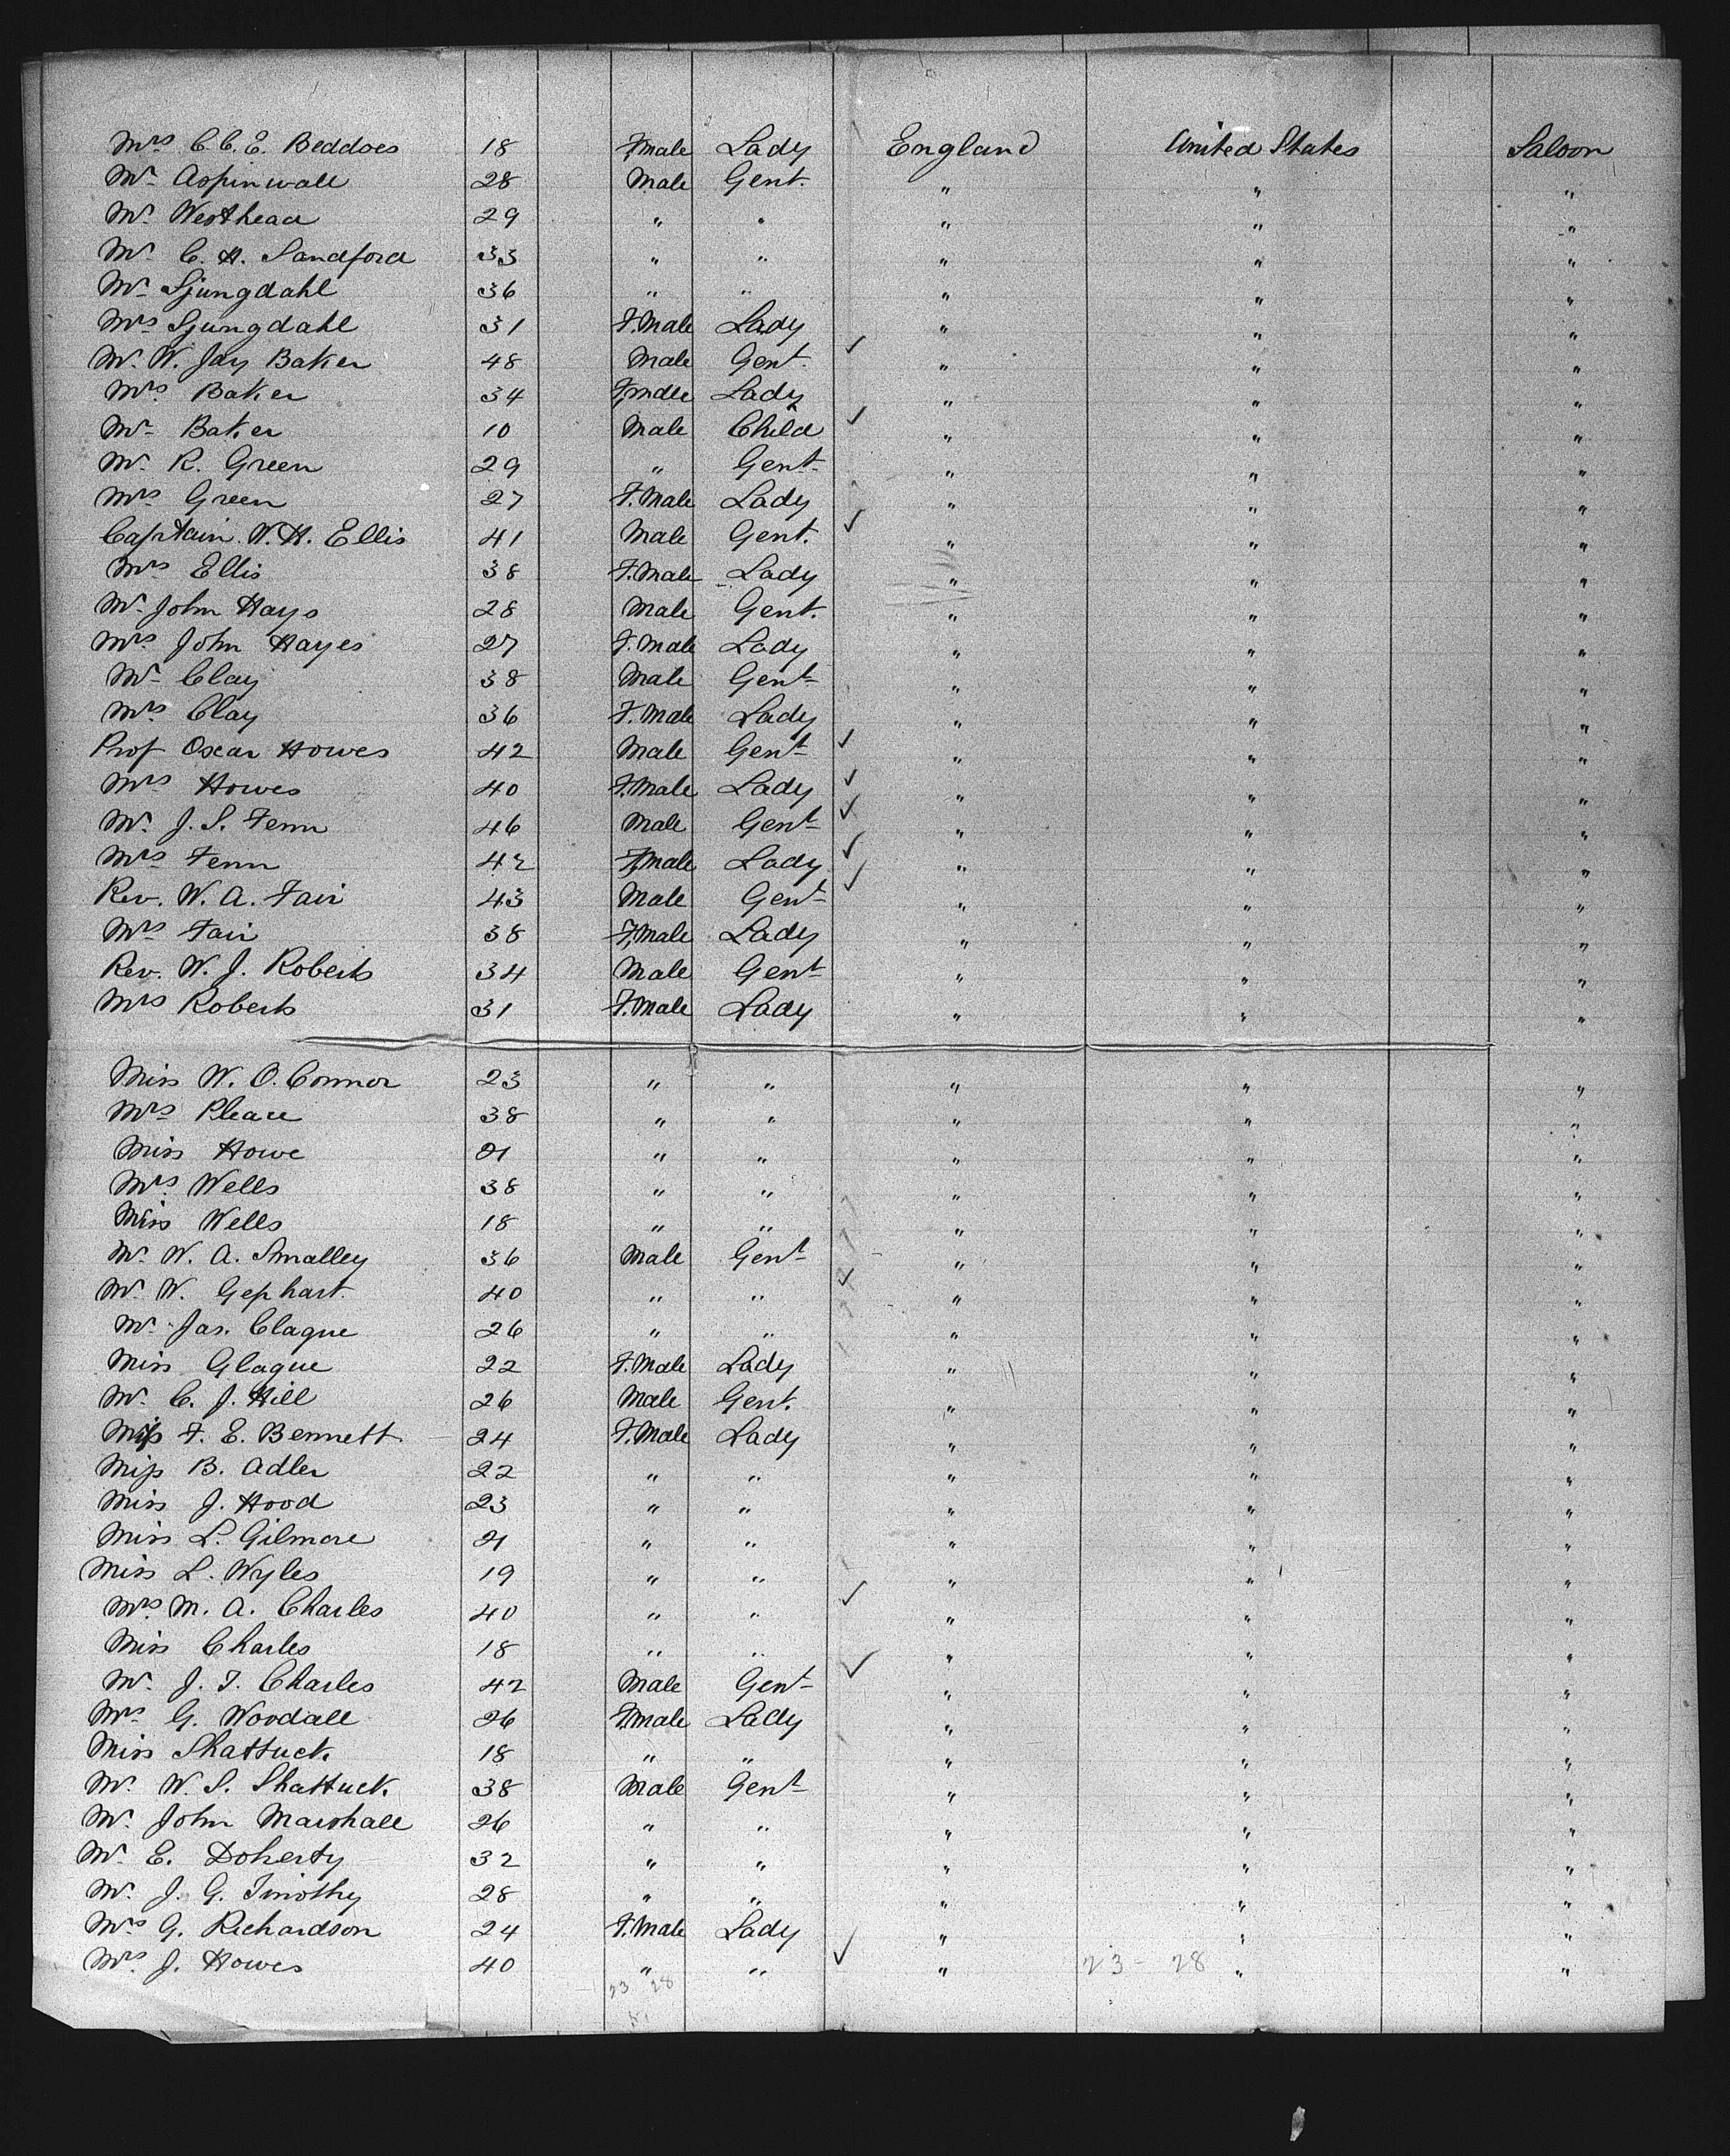 Mrs C. C. E. Beddoes 18 F,male Lady England United States Saloon
Mr Aspinwall 28 Male Gent. " " "
Mr Westhead 29 " " " " "
Mr C. H. Sandford 33 " " " " "
Mr Sjungdahl 36 " " " " "
Mrs Sjungdahl 31 F.Male Lady " " "
Mr W. Jay Baker 48 Male Gent. ✓ " " "
Mrs Baker 34 F,male Lady " " "
Mr Baker 10 Male Child ✓ " " "
Mr R. Green 29 " Gent " " "
Mrs Green 27 F.Male Lady " " "
Captain W. H. Ellis 41 Male Gent. ✓ " " "
Mrs Ellis 38 F.Male Lady " " "
Mr John Hays 28 Male Gent. " " "
Mrs John Hayes 27 F.Male Lady " " "
Mr Clay 38 Male Gent " " "
Mrs Clay 36 F.Male Lady " " "
Prof Oscar Howes 42 Male Gent ✓ " " "
Mrs Howes 40 F.Male Lady ✓ " " "
Mr J. S. Fenn 46 Male Gent ✓ " " "
Mrs Fenn 42 F,male Lady ✓ " " "
Rev. W. A. Fair 43 Male Gent ✓ " " "
Mrs Fair 38 F,Male Lady " " "
Rev. W. J. Roberts 34 Male Gent " " "
Mrs Roberts 31 F.Male Lady " " "
Miss W. O. Connor 23 " " " " "
Mrs 38 " " " " "
Miss Howe 21 " " " " "
Mrs Wells 38 " " " " "
Miss Wells 18 " " " " "
Mr W. A. Smalley 36 Male Gent " " "
Mr W. Gephart 40 " " ✓ " " "
Mr Jas. Clague 26 " " " " "
Miss Glague 22 F.Male Lady " " "
Mr C. J. Hill 26 Male Gent. " " "
Miss F. E. Bennett 24 F.Male Lady " " "
Miss B. Adler 22 " " " " "
Miss J. Hood 23 " " " " "
Miss L. Gilmore 21 " " " " "
Miss L. Wyles 19 " " " " "
Mrs M. A. Charles 40 " " ✓ " " "
Miss Charles 18 " " " " "
Mr J. T. Charles 42 Male Gent ✓ " " "
Mrs G. Woodall 26 F.male Lady " " "
Miss Shattuck 18 " " " " "
Mr W. S. Shattuck 38 Male Gent " " "
Mr John Marshall 26 " " " " "
Mr E. Doherty 32 " " " " "
Mr J. G. Timothy 28 " " " " "
Mrs G. Richardson 24 F.Male Lady " " "
Mrs J. Howes 40 " " ✓ " 23 - 28 " "
23 28
51